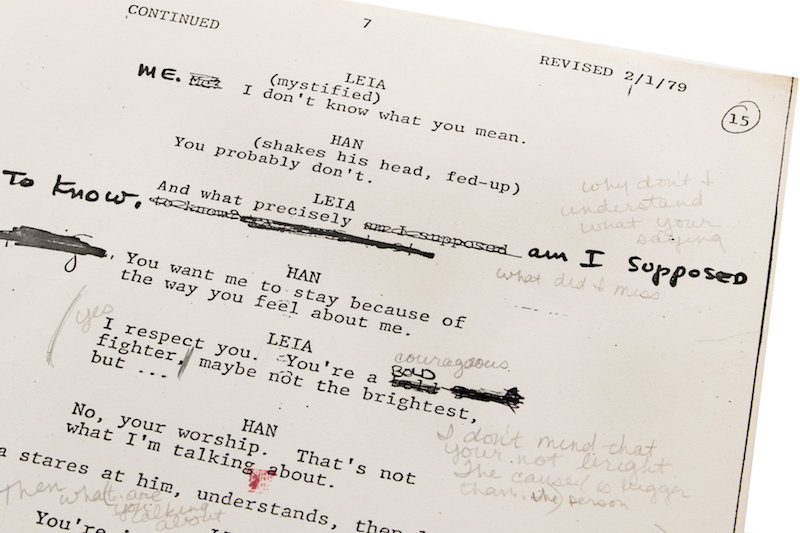 CONTINUED
7
REVISED 2/1/79
15
LEIA
(mystified)
ME. Me? I don't know what you mean.
HAN
(shakes his head, fed-up)
You probably don't.
why don't I
understand
what your
saying
LEIA
And what precisely am I supposed am I supposed
To Know. to know?
what did I miss
HAN
, You want me to stay because of
the way you feel about me.
yes
LEIA
I respect you. You're a
couragous
BOLD
bold
fighter, maybe not the brightest,
but ...
HAN
No, your worship. That's not
what I'm talking about.
I don't mind that
your not bright
The cause is bigger
than the person
a stares at him, understands, then
Then what are
you talking
about
You're